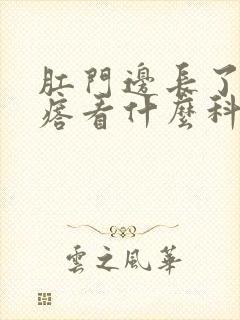 肛門邊長了
痞看什麼科
雲之風華